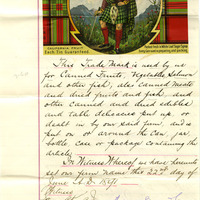 CALIFORNIA FRUIT
Each Tin Guaranteed
This Trade Mark is used by us
for Canned Fruits, Vegetables Salmon
and other fish, also Canned Meats
and dried fruits and fish, and
other canned and dried edibles
and table delicacies put up or
dealt in by our said firm, and is
put on or around the can, jar
bottle, case or package containing
the article.
In Witness Whereof we have hereunto
set our firm name this 22nd day of
June A.D. 1891.
Witness